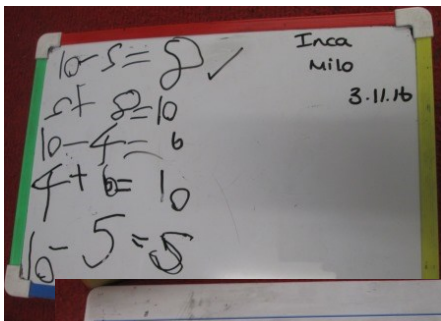 10-2=8 ✓
2+8=10
10-4=6
4+6=10
10-5=5
Inca
Milo
3.11.16